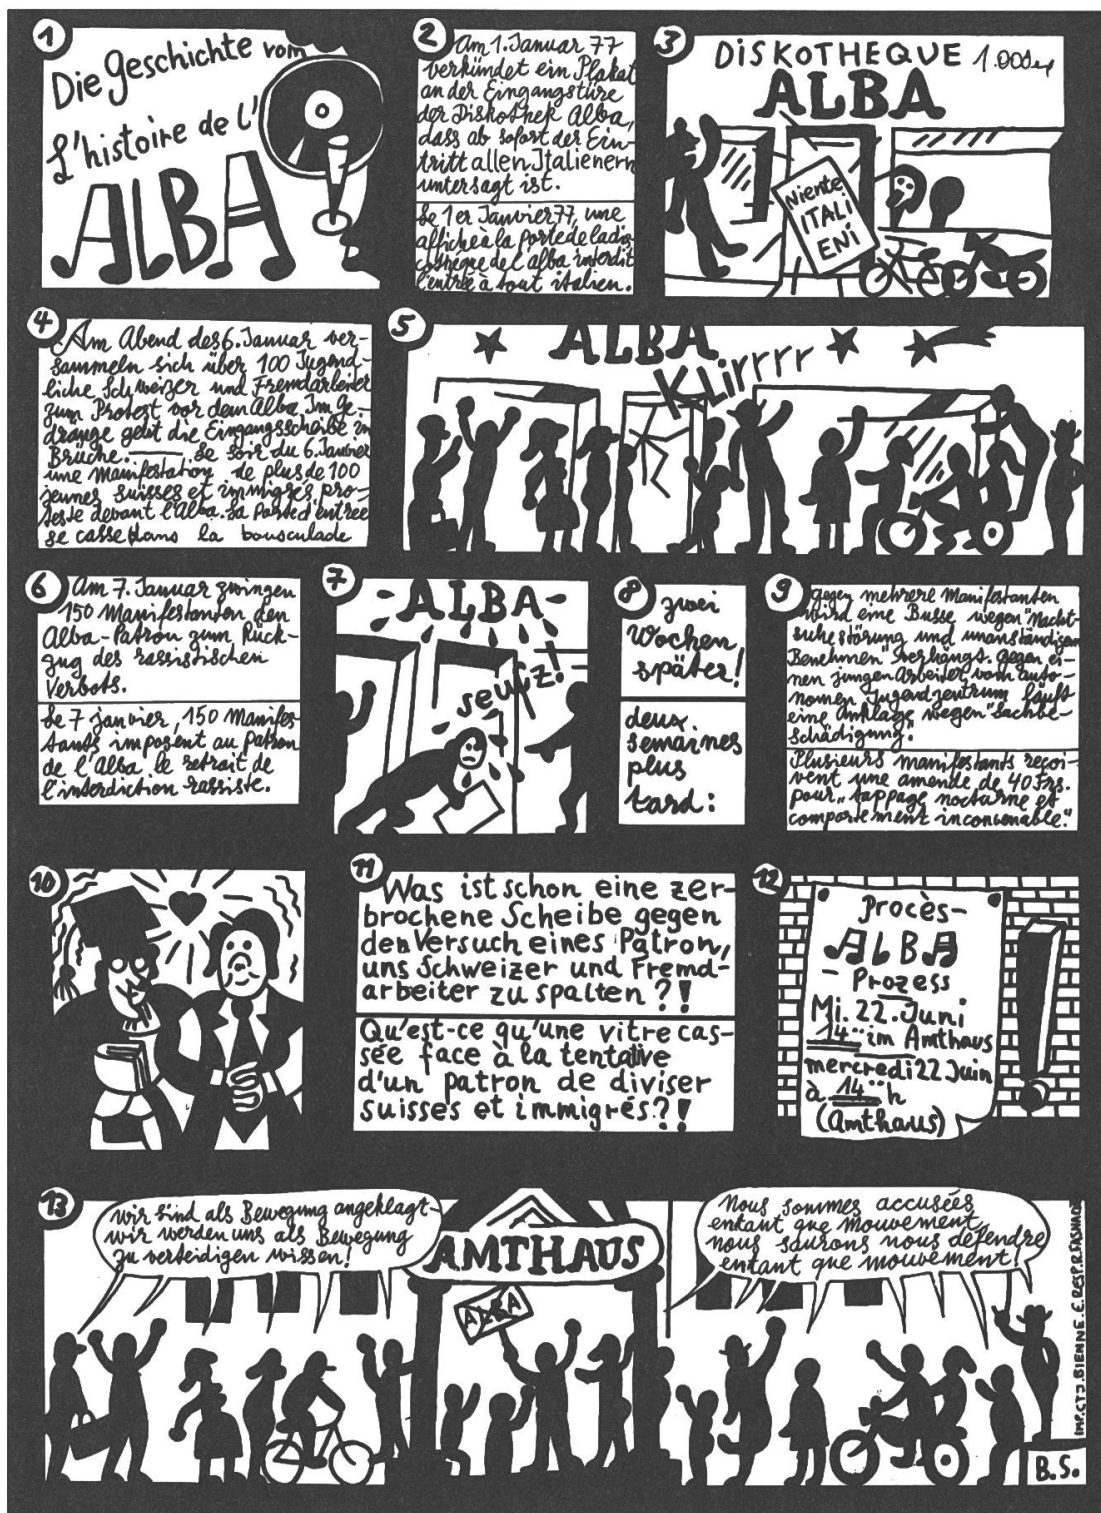 1
Die Geschichte vom
L'histoire de l'
ALBA
2
Am 1. Januar 77
verkündet ein Plakat
an der Eingangstüre
der Diskothek Alba,
dass ab sofort der Ein-
tritt allen Italienern
untersagt ist.
Le 1er Janvier 77, une
affiche à la porte de la dis-
cothèque de l'alba interdit
l'entrée à tout italien.
3
DISKOTHEQUE
ALBA
Niente
ITALI
ENI
4
Am Abend des 6. Januar ver-
sammeln sich über 100 Jugend-
liche, Schweizer und Fremdarbeiter
zum Protest vor dem Alba. Im Ge-
dränge geht die Eingangsscheibe in
Brüche. Le soir du 6. Janvier
une manifestation de plus de 100
jeunes suisses et immigrés pro-
teste devant l'Alba. La porte d'entrée
se casse dans la bousculade
5
ALBA
KLirrrr
6
Am 7. Januar zwingen
150 Manifestanten den
Alba-Patron zum Rück-
zug des rassistischen
Verbots.
Le 7 janvier, 150 Manifes-
tants imposent au patron
de l'Alba le retrait de
l'interdiction raciste.
7
-ALBA-
seufz!
8
zwei
Wochen
später!
deux
semaines
plus
tard:
9
gegen mehrere Manifestanten
wird eine Busse wegen "Nacht-
ruhestörung und unanständigem
Benehmen" verhängt. Gegen ei-
nen jungen Arbeiter vom auto-
nomen Jugendzentrum läuft
eine Anklage wegen "Sachbe-
schädigung".
Plusieurs manifestants reçoi-
vent une amende de 40 Frs.
pour "tappage nocturne et
comportement inconvenable."
10
11
Was ist schon eine zer-
brochene Scheibe gegen
den Versuch eines Patron,
uns Schweizer und Fremd-
arbeiter zu spalten?!
Qu'est-ce qu'une vitre cas-
sée face à la tentative
d'un patron de diviser
suisses et immigrés?!
12
Procès-
ALBA
- Prozess
Mi. 22. Juni
14°° im Amthaus
mercredi 22 Juin
à 14°° h
(Amthaus)
!
13
wir sind als Bewegung angeklagt-
wir werden uns als Bewegung
zu verteidigen wissen!
AMTHAUS
ALBA
Nous sommes accusées
entant que mouvement,
nous saurons nous défendre
entant que mouvement!
B.S.